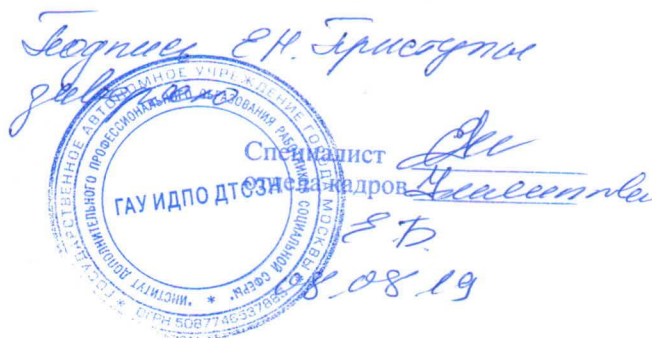 Подпись Е.Н. Приступы
заверяю
Специалист
отдела кадров
Е Б.
08.08.19
ГОСУДАРСТВЕННОЕ АВТОНОМНОЕ УЧРЕЖДЕНИЕ ГОРОДА МОСКВЫ
"ИНСТИТУТ ДОПОЛНИТЕЛЬНОГО ПРОФЕССИОНАЛЬНОГО ОБРАЗОВАНИЯ РАБОТНИКОВ СОЦИАЛЬНОЙ СФЕРЫ"
ГАУ ИДПО ДТСЗН
ОГРН